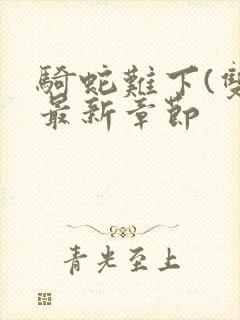 騎蛇難下(雙
最新章節
青光至上